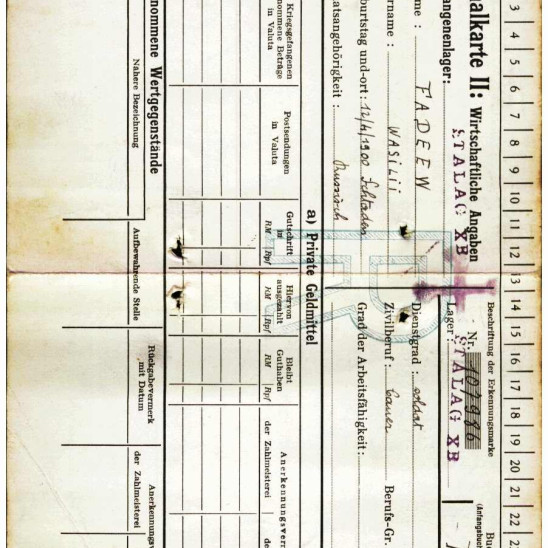 3 4 5 6 7 8 9 10 11 12 13 14 15 16 17 18 19 20 21 22 2
alkarte II: Wirtschaftliche Angaben
Beschriftung der Erkennungsmarke
angenenlager: STALAG XB
Nr. 107986
Lager: STALAG XB
(Anfangsbuch
me: FADEEW
rname: WASILII
Dienstgrad: soldat
burtstag und-ort: 12/4/1900
Zivilberuf: bauer Berufs-Gr.
atsangehörigkeit: Russisch
Grad der Arbeitsfähigkeit:
a) Private Geldmittel
Kriegsgefangenen
nommene Beträge
in Valuta
Postsendungen
in Valuta
Gutschrift
in
RM Rpf
Hiervon
ausgezahlt
RM Rpf
Bleibt
Guthaben
RM Rpf
Anerkennungsver
der Zahlmeisterei
de
nommene Wertgegenstände
Nähere Bezeichnung
Aufbewahrende Stelle
Rückgabevermerk
mit Datum
Anerkennungsv
der Zahlmeisterei